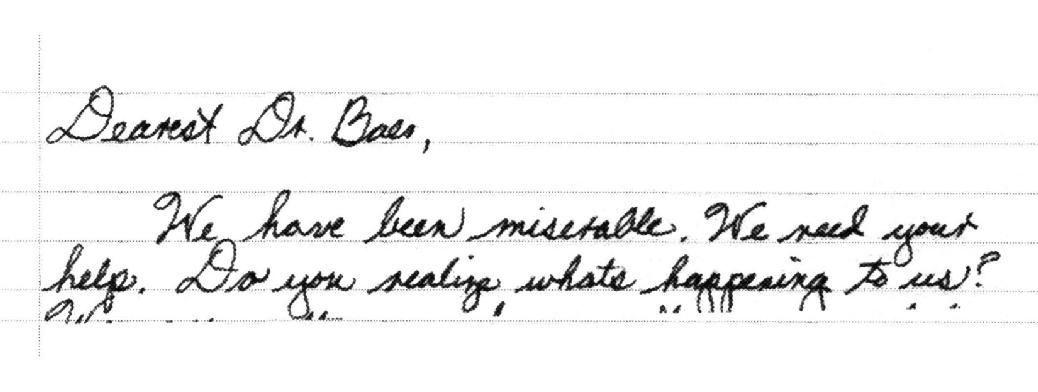 Dearest Dr. Baer,
We have been miserable. We need your
help. Do you realize whats happening to us?